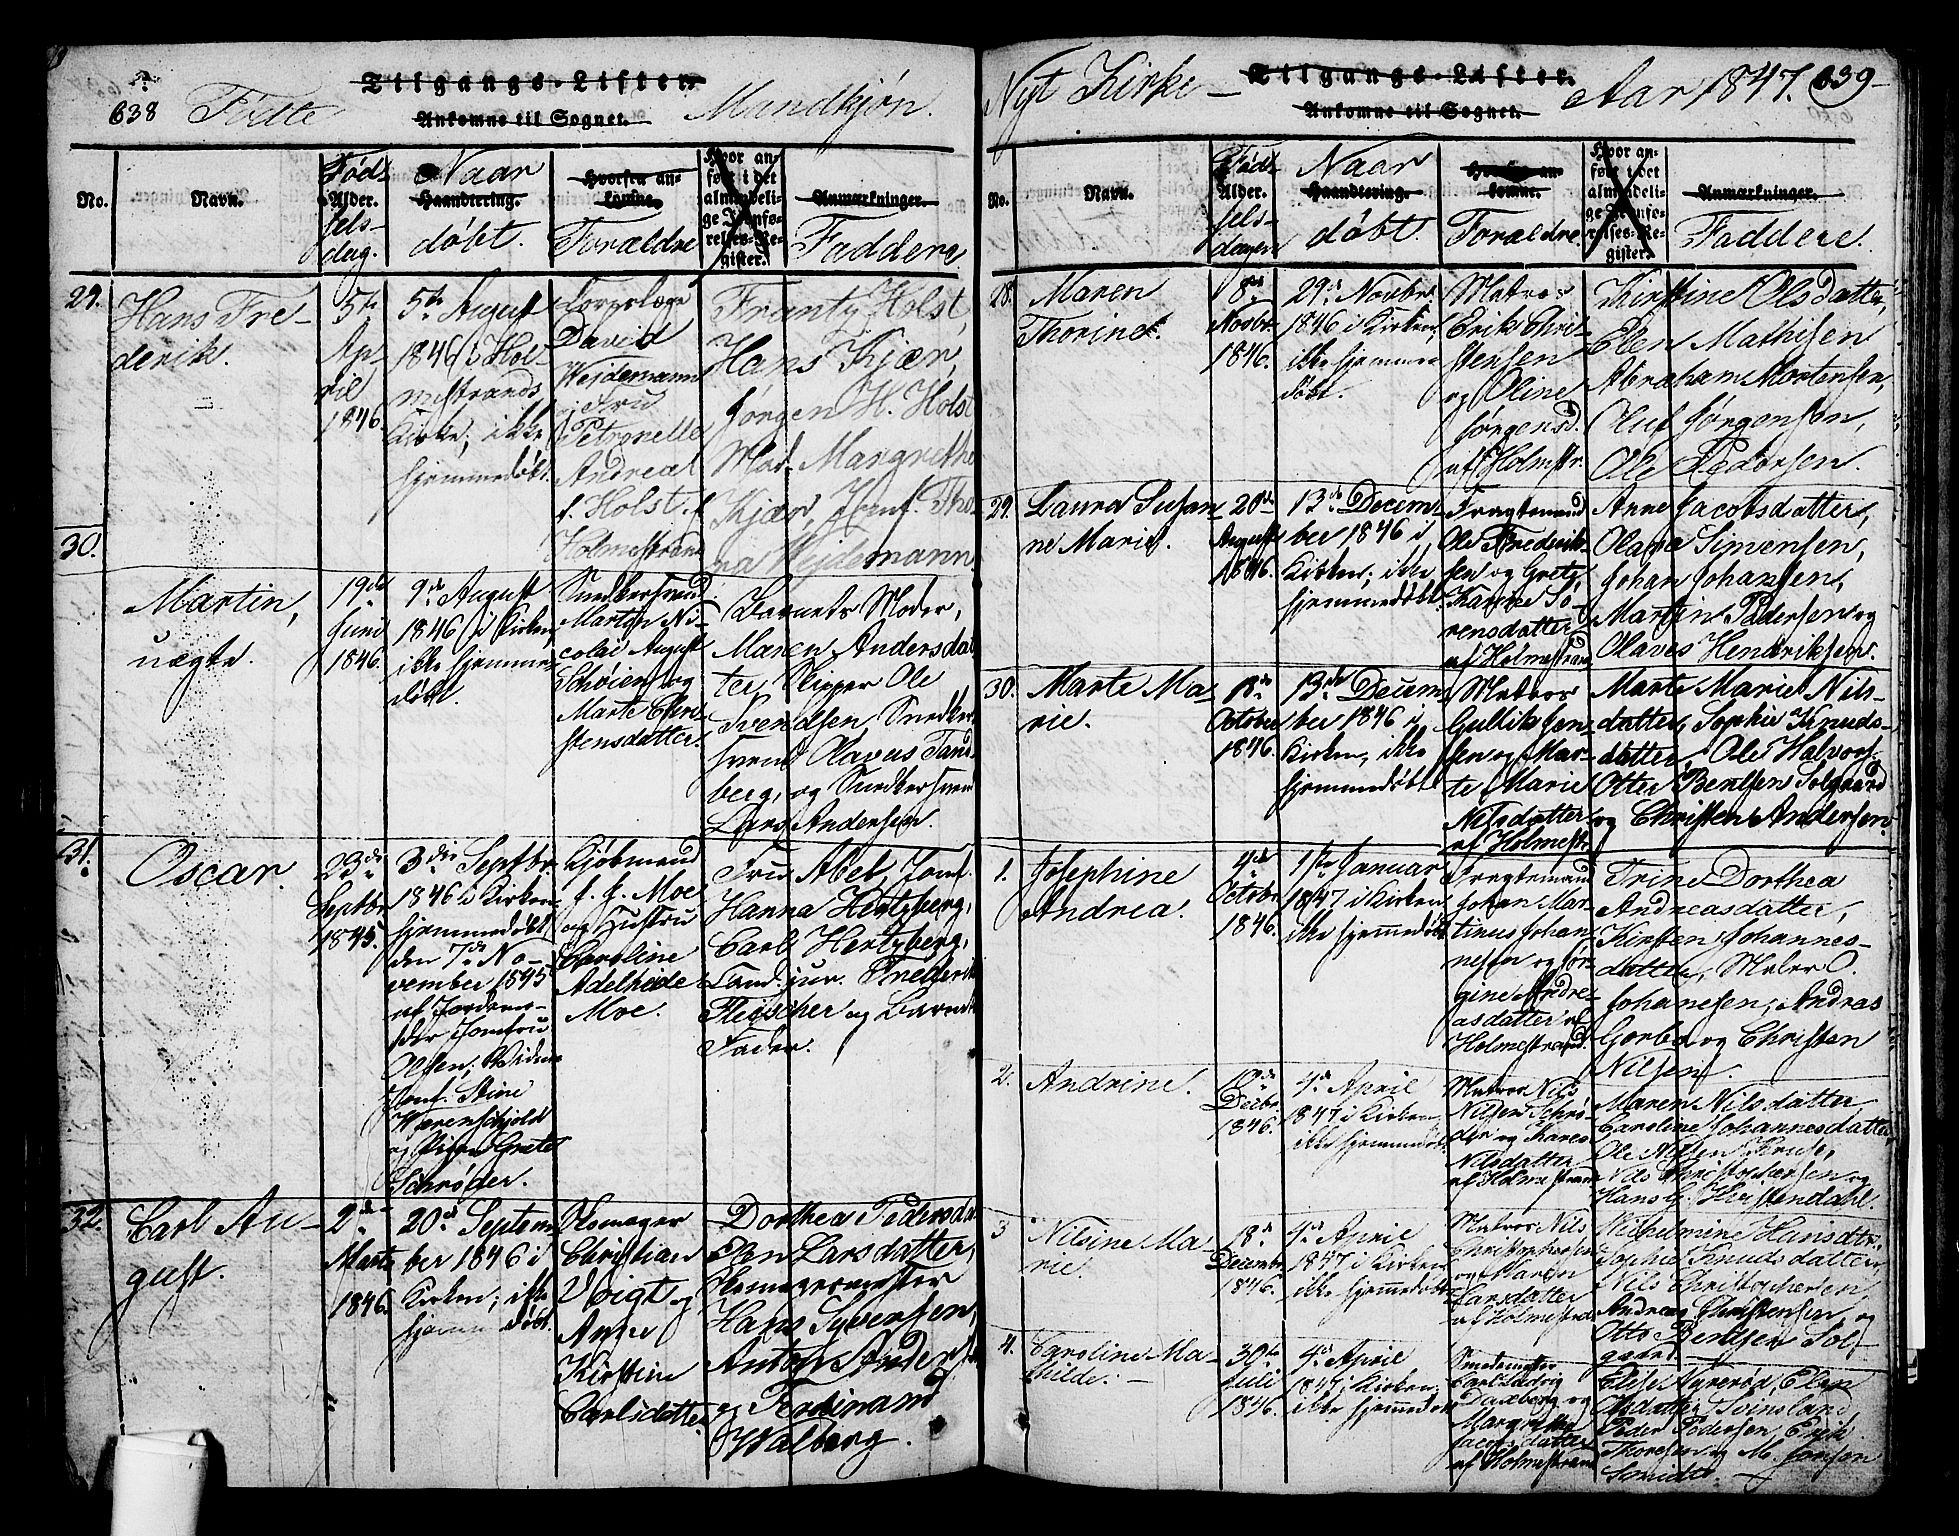 638 Fødte Tilgangs-Lister. Mandkjøn.
Ankomne til Sognet.
No. Navn. Føds Alder. sels- dag. Naar Haandtering. døbt. Hvorfra ankomne. Forældre Hvor anført i det almindelige Jevnførelses-Register. Anmærkninger. Faddere
29.
Hans Fre-
derik.
5te
Ap-
ril
1846.
5te August
1846 i Hol-
mestrands
Kirke, ikke
hjemmedøbt.
Corpslæge
David
Wejdemann
og Fru
Petronelle
Andrea
f. Holst. f.
Holmestrand
Frantz Holst,
Hans Kjær,
Jørgen H. Holst
Mad. Margrethe
Kjær, Jomf. Tho-
ra Wejdemann
30.
Martin,
uægte.
19de
Juni
1846.
9de August
1846 i Kirken,
ikke hjemme-
døbt.
Snedkersvend
Martin Ni-
colai August
Schøien og
Marte Chri-
stensdatter.
Barnets Moder,
Maren Andersdat-
ter, Skipper Ole
Svendsen, Snedker-
svend Olavus Tans-
berg, og Snedkersvend
Lars Andersen.
31.
Oscar.
23de
Septbr.
1845.
3die Septbr.
1846 i Kirken
hjemmedøbt
den 7de No-
vember 1845
af Jordemo-
der Jomfru
Olsen, Vidne
Jomf. Stine
Wærenskjold
og Pigen Grete
Schrøder.
Kjøbmand
f. G. Moe
og Hustru
Caroline
Adelheide
Moe.
Fru Abel, Jomf.
Hanna Hertzberg,
Carl Hertzberg,
Cand. jur. Frederik
Fleischer og Barnets
Fader.
32.
Carl Au-
gust.
2de
Marts
1846.
20de Septem-
ber 1846 i
Kirken; ikke
hjemmedøbt.
Christian
Voigt og
Anne
Kirstine
Carlsdatter
Dorthea Pedersdat
Elen Larsdatter,
Hans Syversen,
Anton Anders
og Ferdinand
Walberg.
Nyt Kirke- Tilgangs-Lister. Aar 1847. 639
Ankomne til Sognet.
No. Navn. Føds Alder. sels- dagen Naar Haandtering. døbt. Hvorfra ankomne. Forældre. Hvor anført i det almindelige Jevnførelses-Register. Anmærkninger. Faddere.
28.
Maren
Thorine.
8de
Novbr.
1846.
29de Novbr.
1846 i Kirken,
ikke hjemme-
døbt.
Matros
Erik Chri-
stensen
og Oline
Jørgensd.
af Holmestr.
Kirstine Olsdatter,
Elen Mathisen
Abraham Mortensen,
Oluf Jørgensen,
Ole Pedersen.
29.
Laura Susan-
ne Marie.
20de
August
1846.
13de Decem-
ber 1846 i
Kirken; ikke
hjemmedøbt.
Fragtemand
Ole Frederik-
sen og Grete
Karine Sø-
rensdatter
af Holmestrand
Anne Jacobsdatter,
Olava Simensen,
Johan Johansen,
Martin Pedersen og
Olaves Hendriksen.
30.
Marte Ma-
rie.
18de
October
1846.
13de Decem-
ber 1846 i
Kirken, ikke
hjemmedøbt
Matros
Gullik Jen-
sen og Mar-
te Marie
Nilsdatter
af Holmestr.
Marte Marie Nils-
datter, Sophie Knuds-
datter, Ole Halvors.
Otter Bentsen Solgaard
og Christen Andersen.
1.
Josephine
Andrea.
4de
Octobr.
1846.
1ste Januar
1847 i Kirken
ikke hjemmedøbt
Fragtemand
Johan Mar-
tinus Johan-
nesen og Jør-
gine Andre-
asdatter af
Holmestrand.
Trine Dorthea
Andreasdatter,
Kirsten Johannes-
datter, Maler O.
Johanesen, Andreas
Gorbo og Christen
Nilsen.
2.
Andrine.
10de
Decbr.
1846.
4de April
1847 i Kirken
ikke hjemmedøbt.
Matros Nils
Nilsen Schrø-
der og Karen
Nilsdatter
af Holmestrand
Maren Nilsdatter
Caroline Johannesdatter,
Ole Nilsen Kruse,
Nils Christophersen og
Hans G. Herstendahl.
3
Nilsine Ma-
rie.
18de
Decembr
1846.
4de April
1847 i Kirken
ikke hjemmedøbt
Matros Nils
Christophersen
og Maren
Larsdatter
af Holmestrand
Wilhelmine Hansdtr.
Sophie Knudsdatter,
Nils Christophersen,
Andreas Christensen og
Otto Berntsen Sol-
gade.
4.
Caroline Ma-
thilde. -
30te
Juli
1846.
4de April
1847 i Kirken,
ikke hjemmedøbt
Smedemester
Carl Ludvig
Daxberg og
Margrethe
Jacobsdatter
af Holmestrand
Elise Ayerød, Elen
Olsdatter Svinsland
Peder Pedersen, Erik
Thoresen og M. Jonsen
Smidt.